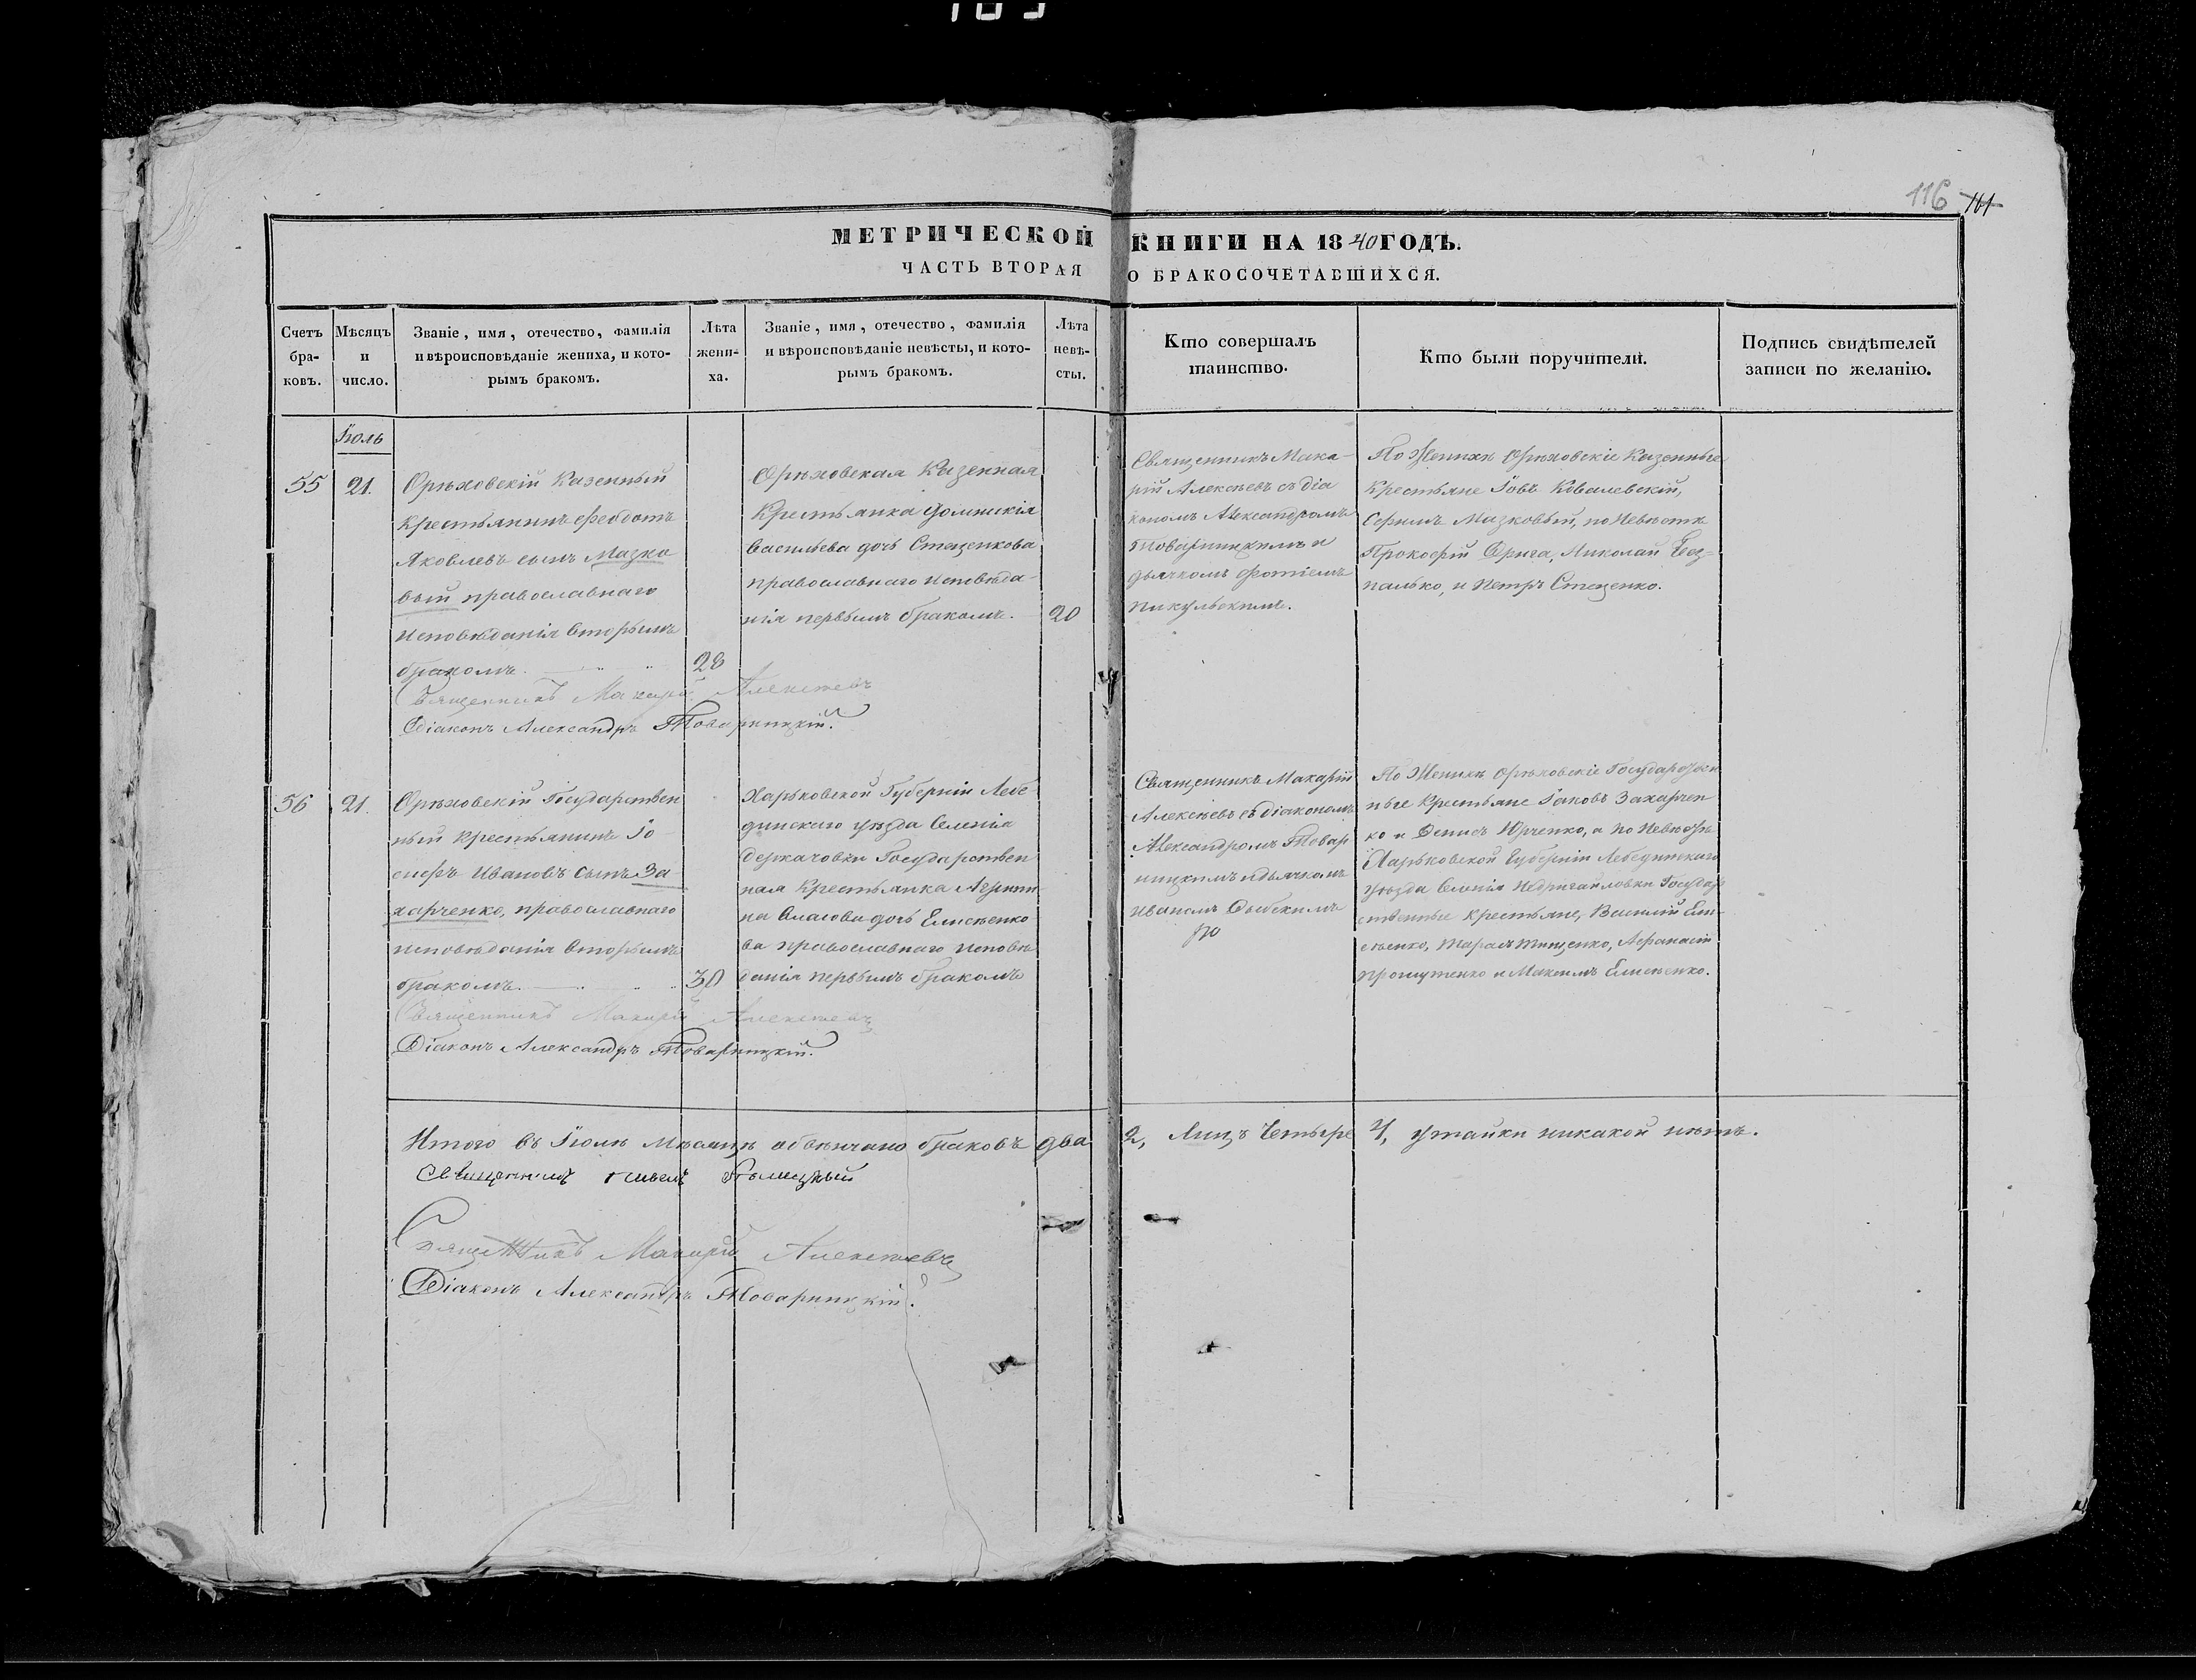 116 111
МЕТРИЧЕСКОЙ КНИГИ НА 1840 ГОДЪ.
ЧАСТЬ ВТОРАЯ О БРАКОСОЧЕТАВШИХСЯ.
Счетъ
бра-
ковъ.
Мѣсяцъ
и
число.
Званіе, имя, отечество, фамилія
и вѣроисповѣданіе жениха, и кото-
рымъ бракомъ.
Лѣта
жени-
ха.
Званіе, имя, отечество, фамилія
и вѣроисповѣданіе невѣсты, и кото-
рымъ бракомъ.
Лѣта
невѣ-
сты.
Кто совершалъ
таинство.
Кто были поручители.
Подпись свидѣтелей
записи по желанію.
Іюль
55
21.
Орѣховскій Казенный
крестьянинъ Феодотъ
Яковлевъ сынъ Мазко
вый православнаго
исповѣданія вторымъ
бракомъ.
28
Орѣховская Казенная
Крестьянка Домникія
Васильева дочь Стаценкова
православнаго исповѣда-
нія первымъ бракомъ.
20
Священникъ Мака-
рій Алексѣевъ съ діа
кономъ Александромъ
Товарницкимъ и
дьячкомъ Фотіемъ
Пикульскимъ.
По Женихѣ Орѣховскіе Казенные
Крестьяне Іовъ Ковалевскій,
Мазковый, по Невѣстѣ
Прокофій Дрига, Николай Без-
палько, и Петръ Стаценко.
Священникъ Макарій Алексѣевъ
Діаконъ Александръ Товарницкій.
56
21.
Орѣховскій Государствен
ный крестьянинъ Іо
сифъ Ивановъ сынъ За
харченко, православнаго
исповѣданія вторымъ
бракомъ.
30
Харьковской Губерніи Лебе
динскаго уѣзда Селенія
Деркачовки Государствен
ная Крестьянка Агрипи
на Власова дочь Елисѣенко
ва православнаго исповѣ
данія первымъ бракомъ
Священникъ Макарій
Алексѣевъ съ діакономъ
Александромъ Товар
ницкимъ и дьячкомъ
Иваномъ
По Женихѣ Орѣховскіе Государствен
ные Крестьяне Іаковъ Захарчен
ко и Денисъ Юрченко, а по Невѣстѣ
Харьковской Губерніи Лебединскаго
уѣзда Селенія Недригайловки Государ
ственные крестьяне, Василій Ели-
сѣенко, Тарасъ Тищенко, Афанасій
и Максимъ Елисѣенко.
Священникъ Макарій Алексѣевъ
Діаконъ Александръ Товарницкій.
Итого въ Іюлѣ Мѣсяцѣ обвѣнчано браковъ два 2, Лицъ Четыре 4, утайки никакой нѣтъ.
Священникъ
Священникъ Макарій Алексѣевъ
Діаконъ Александръ Товарницкій.